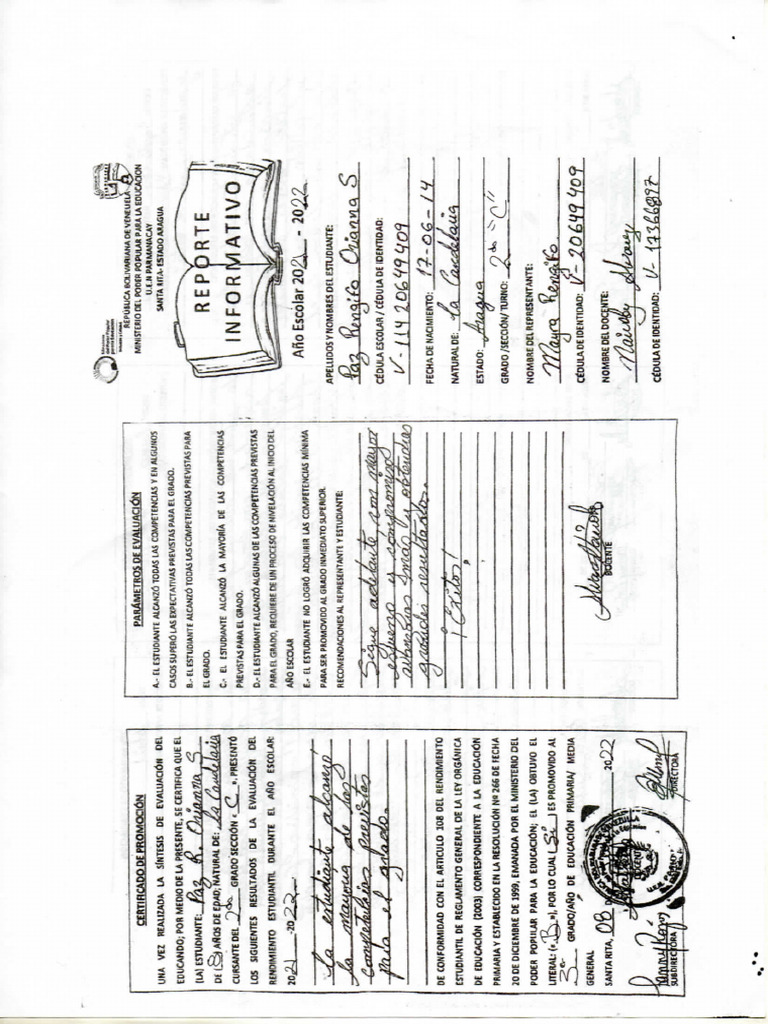 CERTIFICADO DE PROMOCIÓN
UNA VEZ REALIZADA LA SÍNTESIS DE EVALUACIÓN DEL
EDUCANDO; POR MEDIO DE LA PRESENTE, SE CERTIFICA QUE EL
(LA) ESTUDIANTE: Paz R. Orianna S
DE (8) AÑOS DE EDAD, NATURAL DE: La Candelaria
CURSANTE DEL 2do GRADO SECCIÓN « C », PRESENTÓ
LOS SIGUIENTES RESULTADOS DE LA EVALUACIÓN DEL
RENDIMIENTO ESTUDIANTIL DURANTE EL AÑO ESCOLAR:
2021-2022
La estudiante alcanzó
la mayoría de las
competencias previstas
para el grado.
DE CONFORMIDAD CON EL ARTICULO 108 DEL RENDIMIENTO
ESTUDIANTIL DE REGLAMENTO GENERAL DE LA LEY ORGÁNICA
DE EDUCACIÓN (2003) CORRESPONDIENTE A LA EDUCACIÓN
PRIMARIA Y ESTABLECIDO EN LA RESOLUCIÓN Nº 266 DE FECHA
20 DE DICIEMBRE DE 1999, EMANADA POR EL MINISTERIO DEL
PODER POPULAR PARA LA EDUCACIÓN; EL (LA) OBTUVO EL
LITERAL: (« B »), POR LO CUAL (Si) ES PROMOVIDO AL
3er GRADO/AÑO DE EDUCACIÓN PRIMARIA/ MEDIA
GENERAL
SANTA RITA, 08 DE 2022
SUBDIRECTORA DIRECTORA
PARÁMETROS DE EVALUACIÓN
A.- EL ESTUDIANTE ALCANZÓ TODAS LAS COMPETENCIAS Y EN ALGUNOS
CASOS SUPERÓ LAS EXPECTATIVAS PREVISTAS PARA EL GRADO.
B.- EL ESTUDIANTE ALCANZÓ TODAS LAS COMPETENCIAS PREVISTAS PARA
EL GRADO.
C.- EL ESTUDIANTE ALCANZÓ LA MAYORÍA DE LAS COMPETENCIAS
PREVISTAS PARA EL GRADO.
D.- EL ESTUDIANTE ALCANZÓ ALGUNAS DE LAS COMPETENCIAS PREVISTAS
PARA EL GRADO, REQUIERE DE UN PROCESO DE NIVELACIÓN AL INICIO DEL
AÑO ESCOLAR
E.- EL ESTUDIANTE NO LOGRÓ ADQUIRIR LAS COMPETENCIAS MÍNIMA
PARA SER PROMOVIDO AL GRADO INMEDIATO SUPERIOR.
RECOMENDACIONES AL REPRESENTANTE Y ESTUDIANTE:
Sigue adelante con mayor
esfuerzo y compromiso
aprenderás más y obtendrás
grandes resultados.
¡Exitos!
DOCENTE
REPÚBLICA BOLIVARIANA DE VENEZUELA
MINISTERIO DEL PODER POPULAR PARA LA EDUCACION
U.E.N PARMANACAY
SANTA RITA- ESTADO ARAGUA
REPORTE
INFORMATIVO
Año Escolar 2021 - 2022
APELLIDOS Y NOMBRES DEL ESTUDIANTE:
Paz Rengifo Orianna S
CÉDULA ESCOLAR / CÉDULA DE IDENTIDAD:
V-11420649409
FECHA DE NACIMIENTO: 17-06-14
NATURAL DE: La Candelaria
ESTADO: Aragua
GRADO /SECCIÓN/ TURNO: 2do "C"
NOMBRE DEL REPRESENTANTE:
Mayra Rengifo
CÉDULA DE IDENTIDAD: V-20649409
NOMBRE DEL DOCENTE:
CÉDULA DE IDENTIDAD: V-17366897